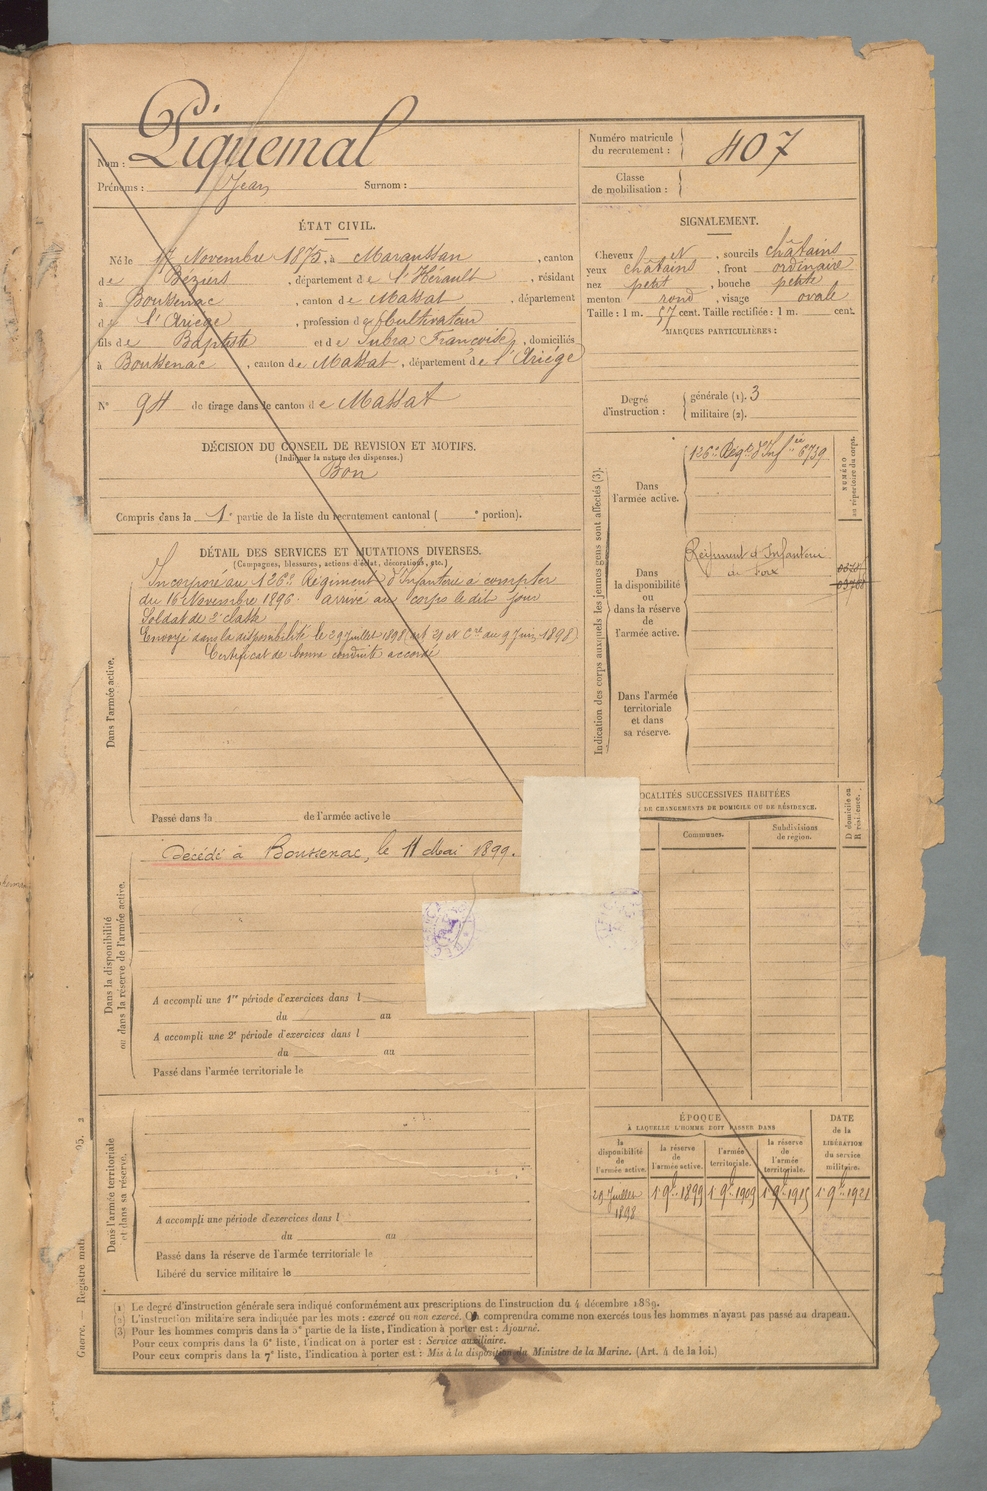 Nom : Piquemal
Prénoms : Jean Surnom :
Numéro matricule
du recrutement : 407
Classe
de mobilisation :
ÉTAT CIVIL.
Né le 17 Novembre 1875, à Maraussan, canton
de Béziers, département de l'Hérault, résidant
à Boussenac, canton de Massat, département
de l'Ariège, profession de Cultivateur
fils de Baptiste et de Subra Françoise, domiciliés
à Boussenac, canton de Massat, département de l'Ariége
N° 94 de tirage dans le canton de Massat
SIGNALEMENT.
Cheveux N, sourcils châtains
yeux châtains, front ordinaire
nez petit, bouche petite
menton rond, visage ovale
Taille : 1 m. 57 cent. Taille rectifiée : 1 m. cent.
MARQUES PARTICULIÈRES :
Degré
d'instruction :
générale (1). 3
militaire (2).
DÉCISION DU CONSEIL DE REVISION ET MOTIFS.
(Indiquer la nature des dispenses.)
Bon
Compris dans la 1e partie de la liste du recrutement cantonal ( e portion).
DÉTAIL DES SERVICES ET MUTATIONS DIVERSES.
(Campagnes, blessures, actions d'éclat, décorations, etc.)
Dans l'armée active.
Incorporé au 126e Régiment d'Infanterie à compter
du 16 Novembre 1896. arrivé au corps le dit jour
Soldat de 2e classe
Envoyé dans la disponibilité le 29 Juillet 1898 (art 21 N Cre du 9 Juin 1898)
Certificat de bonne conduite accordé
Passé dans la de l'armée active le
Indication des corps auxquels les jeunes gens sont affectés (3).
NUMÉRO
au répertoire du corps.
Dans
l'armée active.
126e Régt d'Infie 6739
Dans
la disponibilité
ou
dans la réserve
de
l'armée active.
Régiment d'Infanterie
de Foix
03768
Dans l'armée
territoriale
et dans
sa réserve.
Dans la disponibilité
ou dans la réserve de l'armée active.
Décédé à Boussenac, le 11 Mai 1899.
A accompli une 1re période d'exercices dans l
du au
A accompli une 2e période d'exercices dans l
du au
Passé dans l'armée territoriale le
OCALITÉS SUCCESSIVES HABITÉES
DE CHANGEMENTS DE DOMICILE OU DE RÉSIDENCE.
Communes.
Subdivisions
de région.
D domicile ou
R résidence.
Dans l'armée territoriale
et dans sa réserve.
A accompli une période d'exercices dans l
du au
Passé dans la réserve de l'armée territoriale le
Libéré du service militaire le
ÉPOQUE
À LAQUELLE L'HOMME DOIT PASSER DANS
la
disponibilité
de
l'armée active.
la réserve
de
l'armée active.
l'armée
territoriale.
la réserve
de
l'armée
territoriale.
DATE
de la
LIBÉRATION
du service
militaire.
29 Juillet
1898
1er 9bre 1899
1er 9bre 1909
1er 9bre 1915
1er 9bre 1921
(1) Le degré d'instruction générale sera indiqué conformément aux prescriptions de l'instruction du 4 décembre 1889.
(2) L'instruction militaire sera indiquée par les mots : exercé ou non exercé. On comprendra comme non exercés tous les hommes n'ayant pas passé au drapeau.
(3) Pour les hommes compris dans la 5e partie de la liste, l'indication à porter est : Ajourné.
Pour ceux compris dans la 6e liste, l'indication à porter est : Service auxiliaire.
Pour ceux compris dans la 7e liste, l'indication à porter est : Mis à la disposition du Ministre de la Marine. (Art. 4 de la loi.)
Guerre. — Registre mat